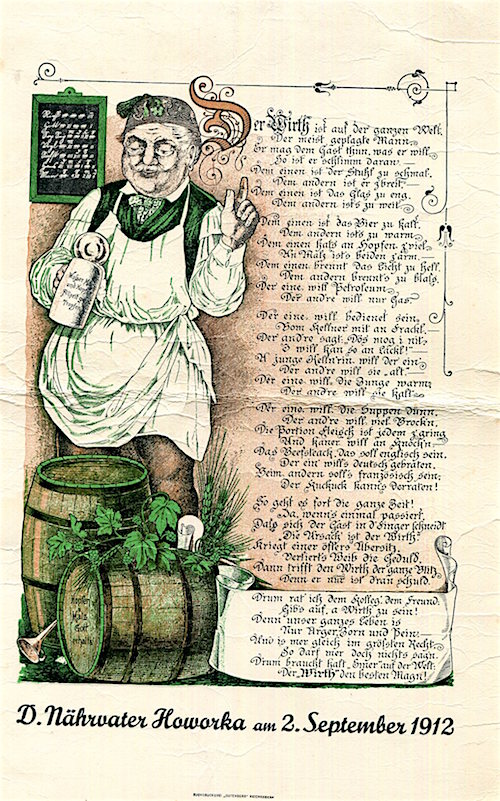 Der Wirth ist auf der ganzen Welt
Der meist geplagte Mann,
Er mag dem Gast thun, was er will,
So ist er schlimm daran. —
Dem einen ist der Stuhl zu schmal,
Dem andern ist er z'breit,
Dem einen ist das Glas zu eng,
Dem andern ist's zu weit.
Dem einen ist das Bier zu kalt,
Dem andern ist's zu warm,
Dem einen hats an Hopfen z'viel,
An Malz ist's beiden z'arm. —
Dem einen brennt das Licht zu hell,
Dem andern brennt's zu blass,
Der eine will Petroleum,
Der andre will nur Gas.
Der eine will bedienet sein,
Vom Kellner mit an Frackl. —
Der andre sagt: Dös mog i nit
'O will kan so an Lackl! —
A junge Kelln'rin will der ein'
Der andre will sie alt. —
Der eine will die Junge warm,
Der andre will sie kalt.
Der eine will die Suppen dünn,
Der andre will viel Brock'n,
Die Portion Fleisch ist jedem z'gring
Und kaner will an Knoch'n.
Das Beefsteack, das soll englisch sein,
Der ein' will's deutsch gebraten,
Beim andern soll's französisch sein;
Der Kuckuck kann's derraten!
So geht es fort die ganze Zeit!
Ja, wenn's einmal passiert,
Daß sich der Gast in d'Finger schneidt
Die Ursach' ist der Wirth.
Kriegt einer öfters Übersitz,
Verliert's Weib die Geduld,
Dann trifft den Wirth der ganze Witz,
Denn er nur ist dran schuld.
Drum rat' ich dem Kolleg', dem Freund,
Gib's auf, a Wirth zu sein!
Denn unser ganzes Leben is
Nur Ärger, Zorn und Pein. —
Und is mer gleich im größten Recht,
So darf mer doch nichts sagn.
Drum braucht halt Einer auf der Welt,
Der „Wirth" den besten Mag'n!
D. Nährvater Howorka am 2. September 1912